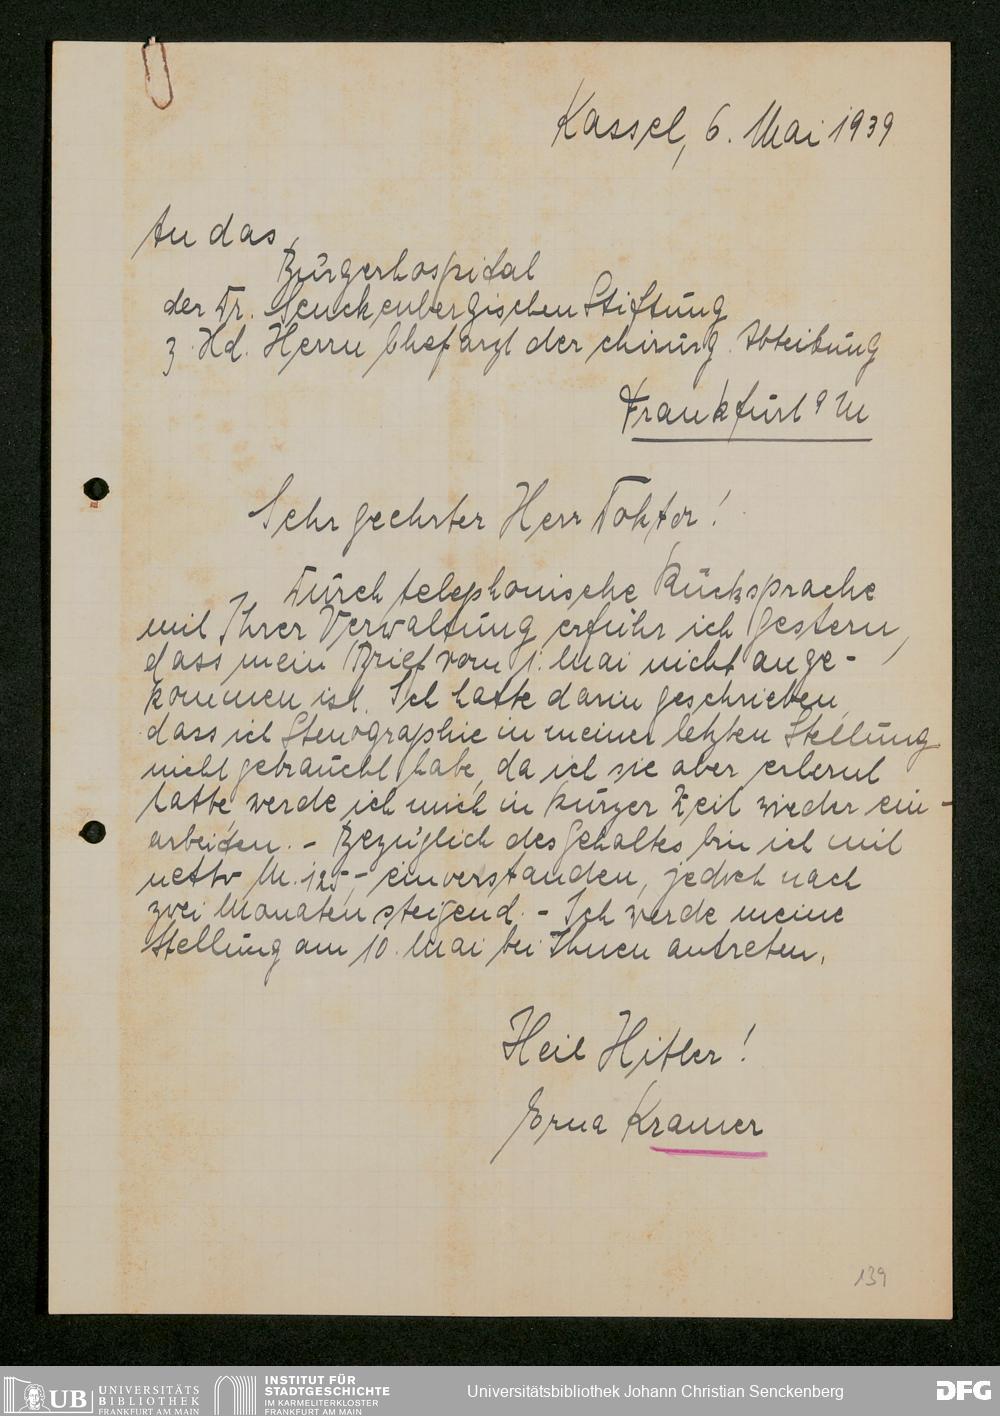 Kassel, 6. Mai 1939
An das
Bürgerhospital
der Dr. Senckenbergischen Stiftung
z. Hd. Herrn Chefarzt der chirurg. Abteilung
Frankfurt a M
Sehr geehrter Herr Doktor!
Durch telephonische Rücksprache
mit Ihrer Verwaltung erfuhr ich gestern,
dass mein Brief vom 1. Mai nicht ange-
kommen ist. Ich hatte darin geschrieben,
dass ich Stenographie in meiner letzten Stellung
nicht gebraucht habe, da ich sie aber erlernt
hatte, werde ich mich in kurzer Zeit wieder ein-
arbeiten. - Bezüglich des Gehaltes bin ich mit
netto M. 125,- einverstanden, jedoch nach
zwei Monaten steigend. - Ich werde meine
Stellung am 10. Mai bei Ihnen antreten.
Heil Hitler!
Erna Kramer
139
UB UNIVERSITÄTS
BIBLIOTHEK
FRANKFURT AM MAIN
INSTITUT FÜR
STADTGESCHICHTE
IM KARMELITERKLOSTER
FRANKFURT AM MAIN
Universitätsbibliothek Johann Christian Senckenberg
DFG